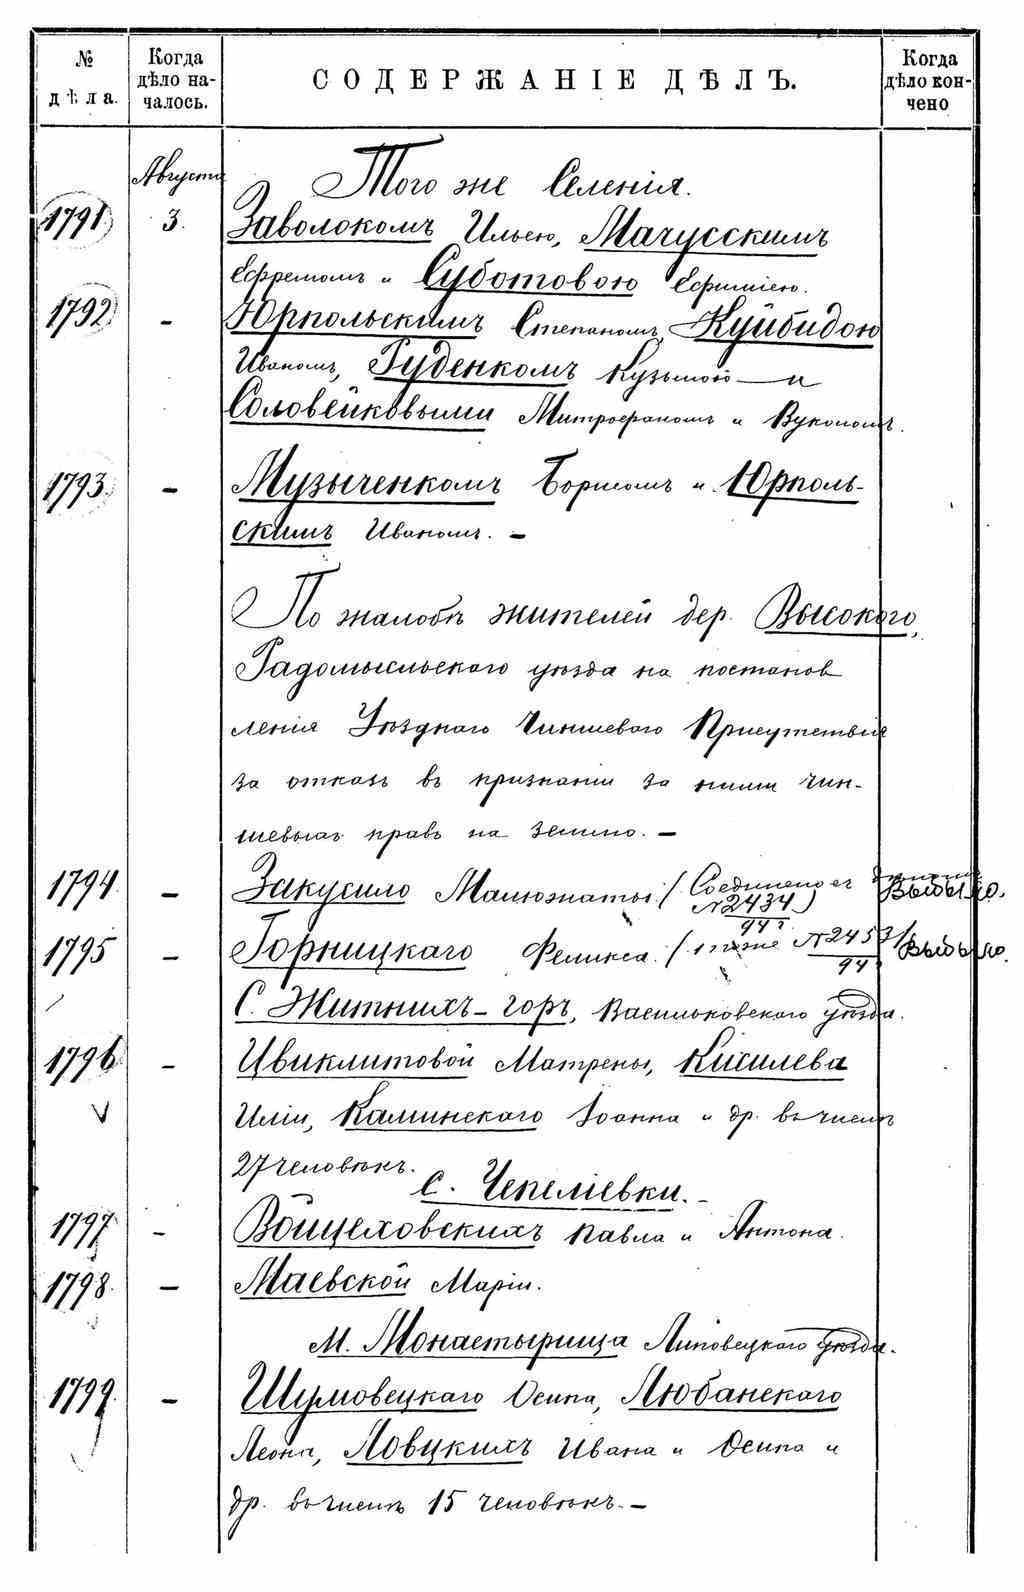 № дѣла.
Когда дѣло началось.
СОДЕРЖАНІЕ ДѢЛЪ.
Когда дѣло кончено
Августа
Того же Селенія.
1791 3. Заволокомъ Ильею, Мачусскимъ
Ефремомъ и Суботовою Ефиміею.
1792 - Юрпольскимъ Степаномъ, Куйбидою
Иваномъ, Руденкомъ Кузьмою — и
Соловейковыми Митрофаномъ и Вуколомъ.
1793. - Музыченкомъ Борисомъ и Юрполь-
скимъ Иваномъ. -
По жалобѣ жителей дер. Высокого,
Радомысльскаго уѣзда на постанов
ленія Уѣзднаго Чиншеваго Присутствія
за отказъ въ признаніи за ними чин-
шевыхъ правъ на землю. -
1794. - Закусило Малюжаты. (Соединено съ
№2434)
94 г.
Выбыло.
1795 - Горницкаго Феликса. (тоже №2453/
94
Выбыло.
С. Житнихъ-горъ, Васильковскаго уѣзда.
1796 - Цвиклитовой Матрены, Кисилева
Иліи, Каминскаго Іоанна и др. въ числѣ
27 человѣкъ.
С. Чепеліевки. -
1797 - Войцеховскихъ Павла и Антона.
1798. - Маевской Маріи.
М. Монастырища Липовецкаго уѣзда.
1799. - Шумовецкаго Осипа, Любанскаго
Леона, Ловцкихъ Ивана и Осипа и
др. въ числѣ 15 человѣкъ. -